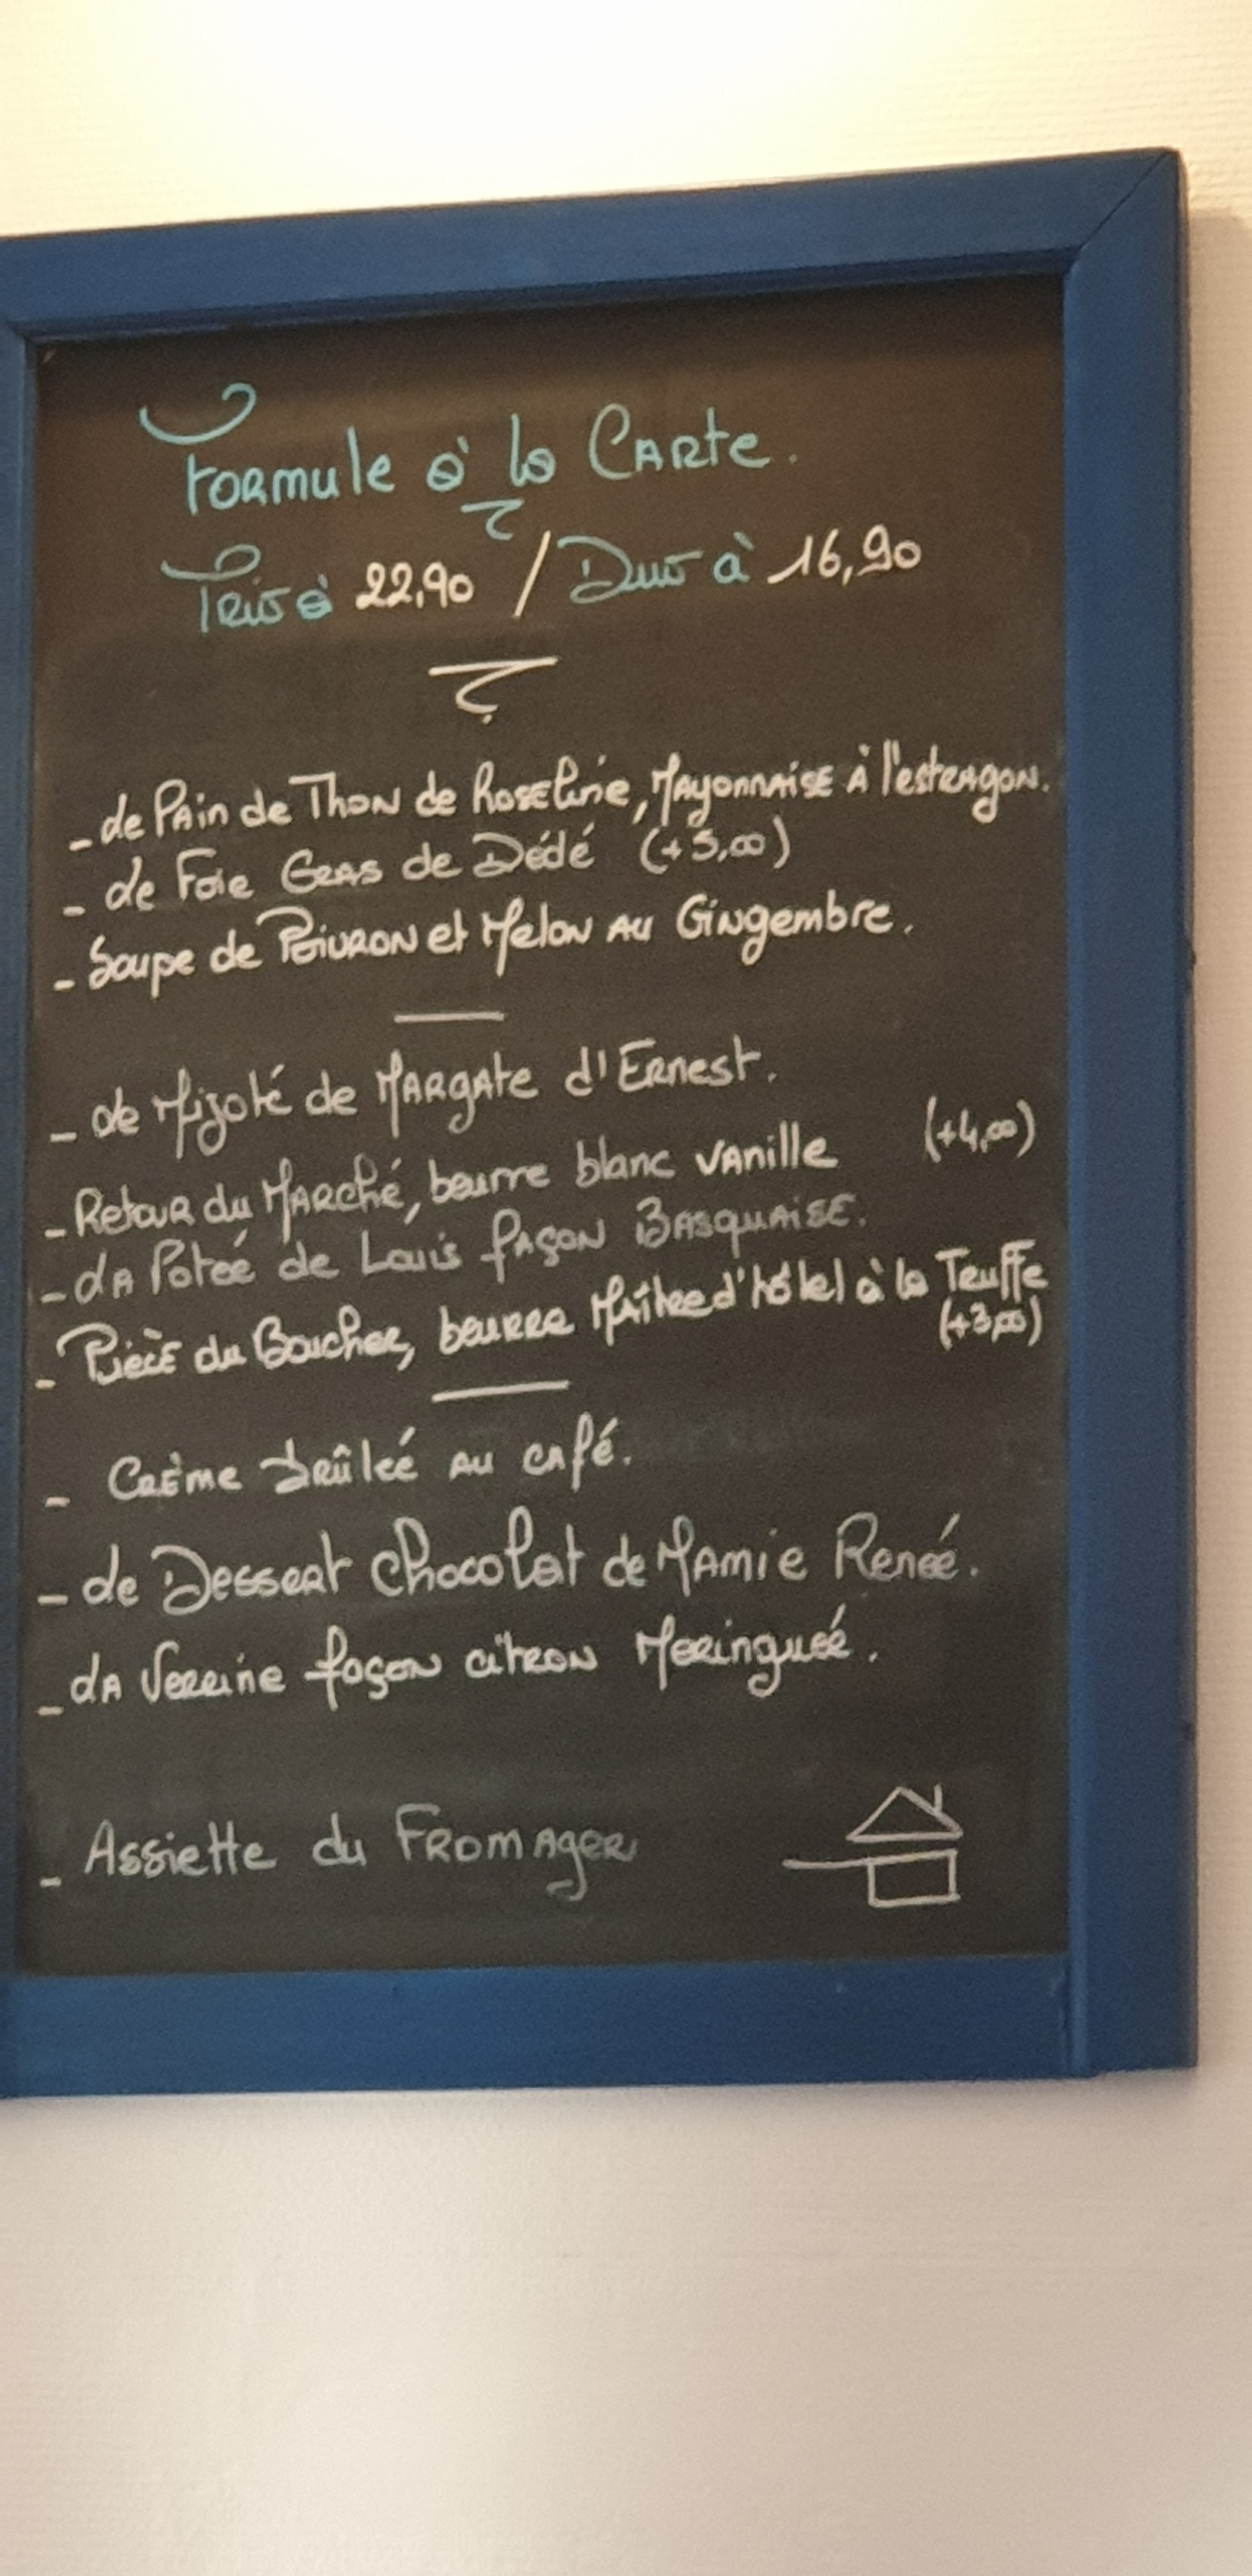 Formule à la Carte.
Trio à 22,90 / Duo à 16,90
- Le Pain de Thon de Roseline, Mayonnaise à l'estragon.
- Le Foie Gras de Dédé (+3,00)
- Soupe de Poivron et Melon au Gingembre.
- Le Mijoté de Margate d'Ernest.
- Retour du Marché, beurre blanc vanille (+4,00)
- La Potée de Louis façon Basquaise.
- Pièce du Boucher, beurre Maître d'hôtel à la Truffe
(+3,00)
- Crème brûlée au café.
- Le Dessert chocolat de Mamie Renée.
- La Verrine façon citron Meringuée.
- Assiette du Fromager